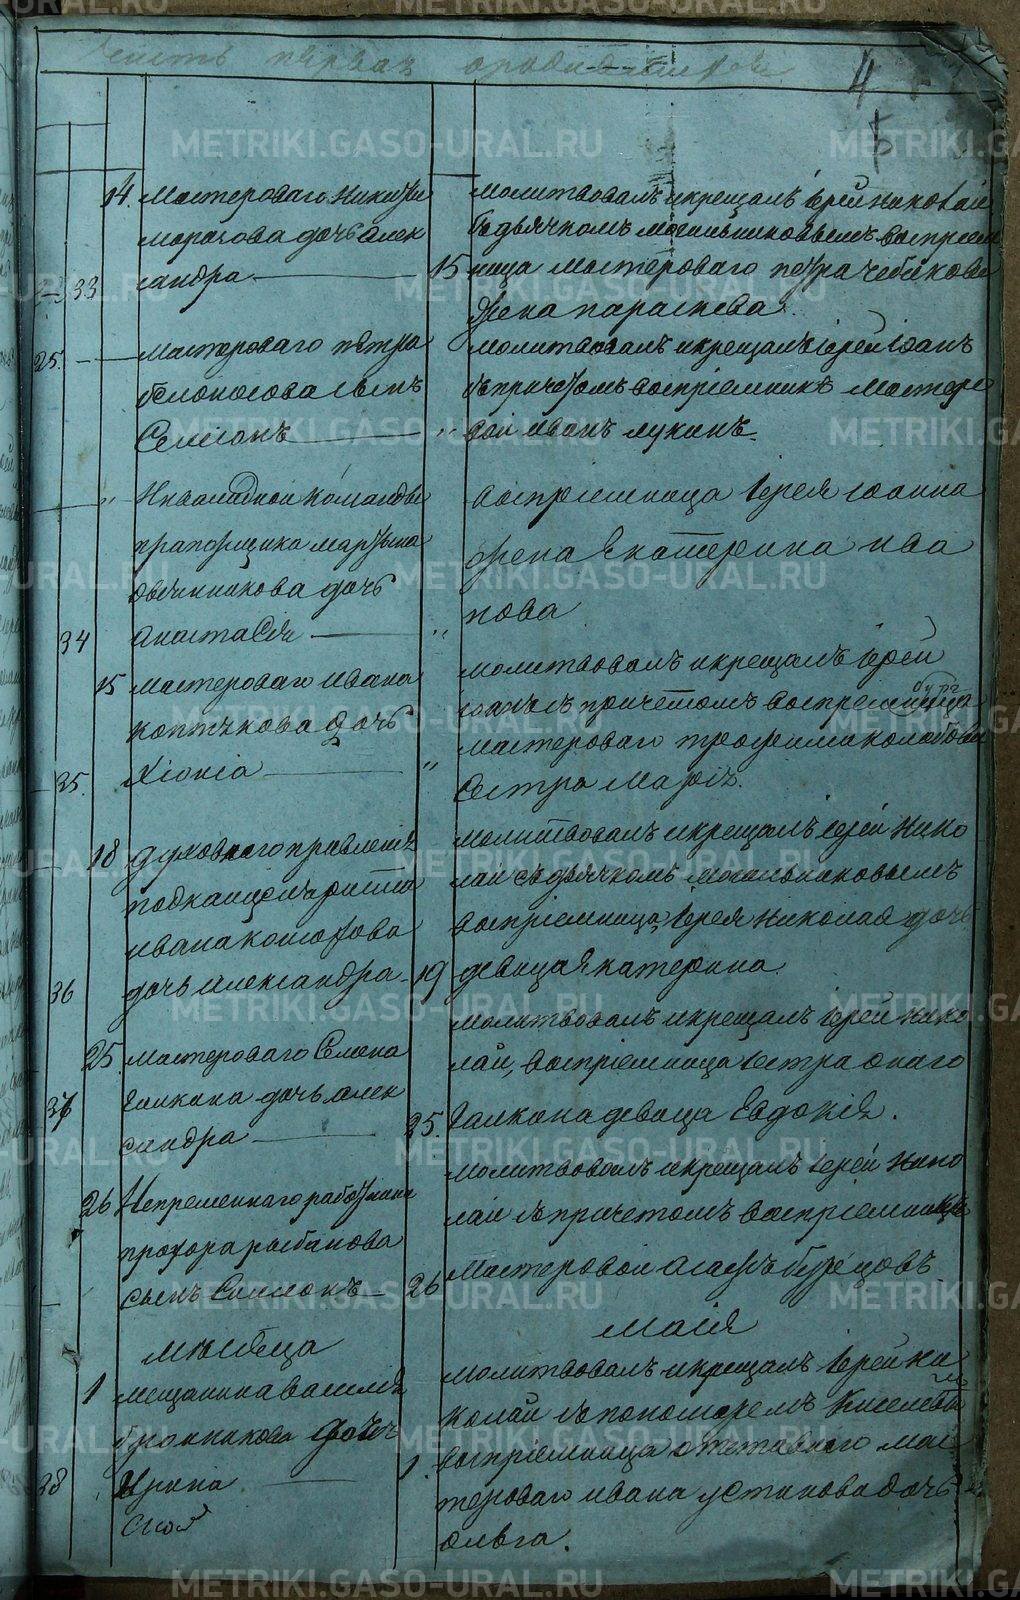 Часть первая о родившихся
4
5
14. Мастероваго Никиты
Морозова дочь Алек
33 сандра
Молитвовалъ и крещалъ іерей Николай
съ дьячкомъ Могильниковымъ воспріем
15 ница мастероваго Петра Чебыкова
жена Параскева.
25. Мастероваго Петра
Белоносова сынъ
Семіонъ
Молитвовалъ и крещалъ іерей Іоанъ
съ причетомъ воспріемникъ мастеро
" вой Иванъ Лукинъ.
" Инвалидной команды
прапорщика Мартына
Овчинникова дочь
34 Анастасія
воспріемница іерея Іоанна
жена Екатерина Ива
нова
"
15 Мастероваго Ивана
Коптякова дочь
35. Хіонія
Молитвовалъ и крещалъ іерей
Іоанъ съ причетомъ воспріемница
мастероваго Трофима Колобова
" сестра Марія.
18 Духовного правленія
подканцеляриста
Ивана
36 дочь Александра
Молитвовалъ и крещалъ іерей Нико
лай съ дьячкомъ Могильниковымъ
воспріемница, іерея Николая дочь
19 девица Екатерина.
25. Мастероваго Семена
37 Галкина дочь Алек
сандра
Молитвовалъ и крещалъ іерей Нико
лай, воспріемница сестра онаго
25. Галкина девица Евдокія.
26 Непременнаго работника
Прохора Рыбакова
сынъ Симіонъ
Молитвовалъ и крещалъ іерей Нико
лай съ причетомъ воспріемникъ
26 Мастеровой
месяца
Маія
1 Мещанина Василія
Бронникова дочь
38 Ирина
Молитвовалъ и крещалъ іерей Ни
колай съ пономаремъ Киселевы
1. воспріемница отставного мас
тероваго Ивана Устинова дочь
Ольга.
METRIKI.GASO-URAL.RU